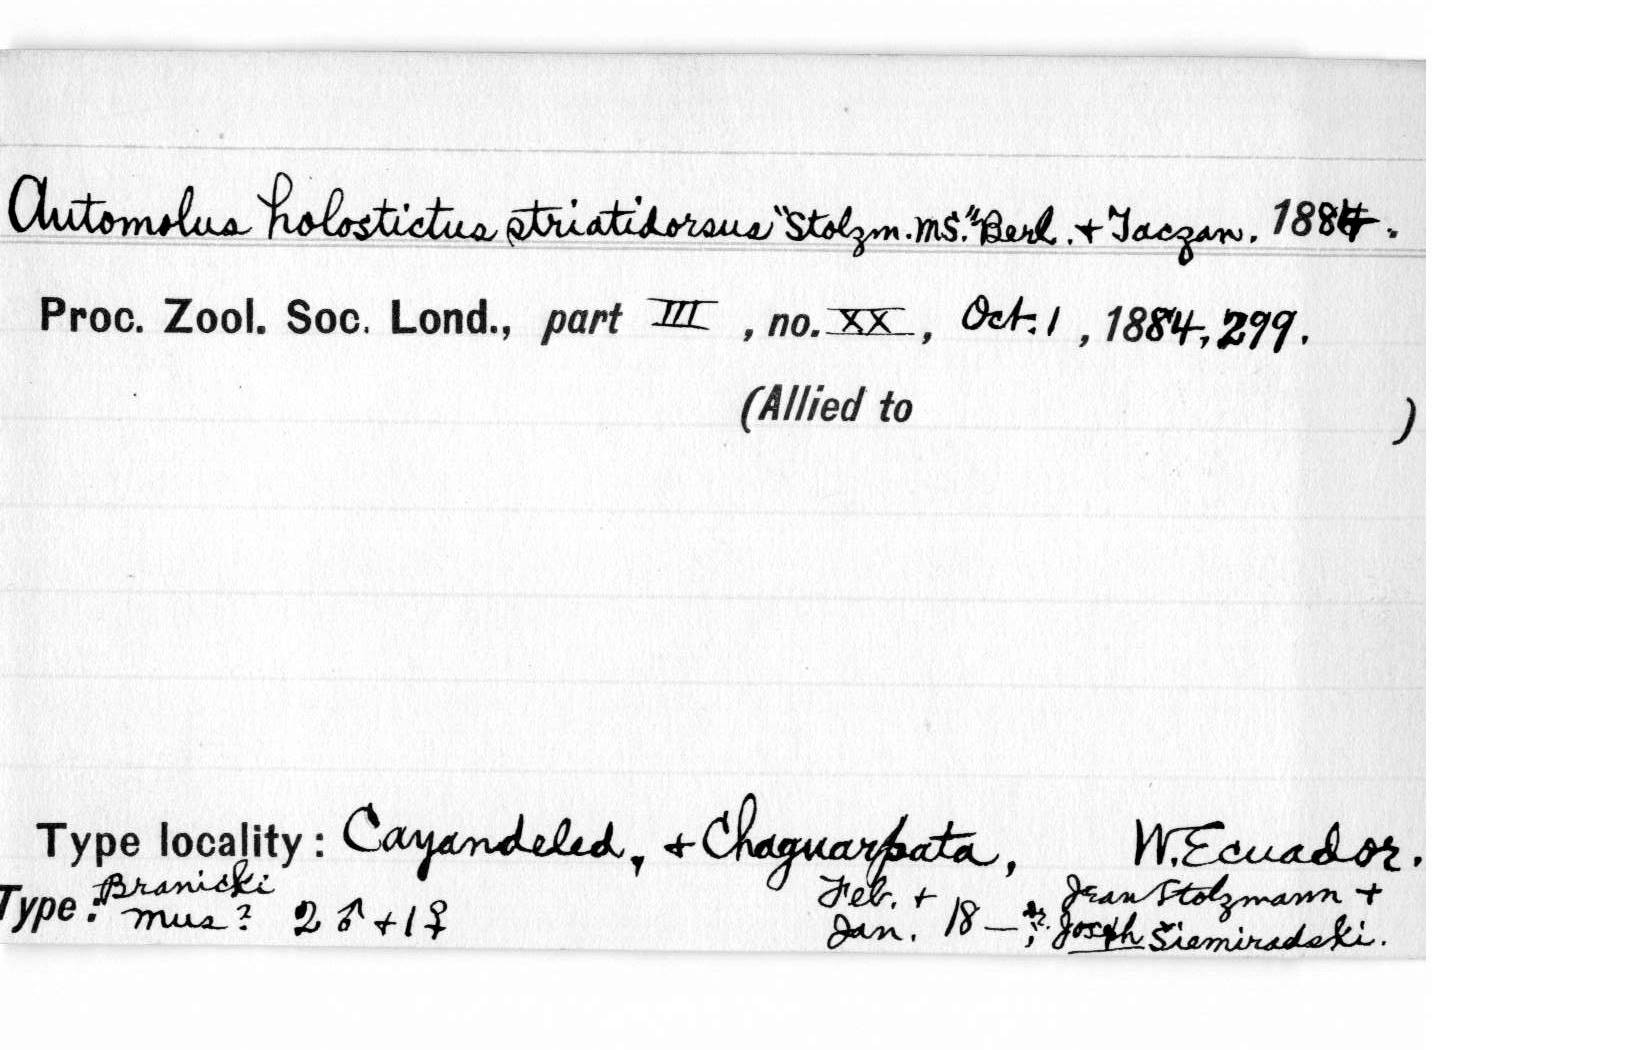 Automolus holostictus striatidorsus "Stolzm. MS." Berl. + Taczan. 1884.
Proc. Zool. Soc. Lond., part III, no. XX, Oct. 1, 1884, 299.
(Allied to )
Type locality: Cayandeled, + Chaguarpata, W. Ecuador.
Type: Branicki Mus? 2 ♂ + 1 ♀ Feb. + Jan. 18—; Jean Stolzmann + Dr. Joseph Siemiradski.